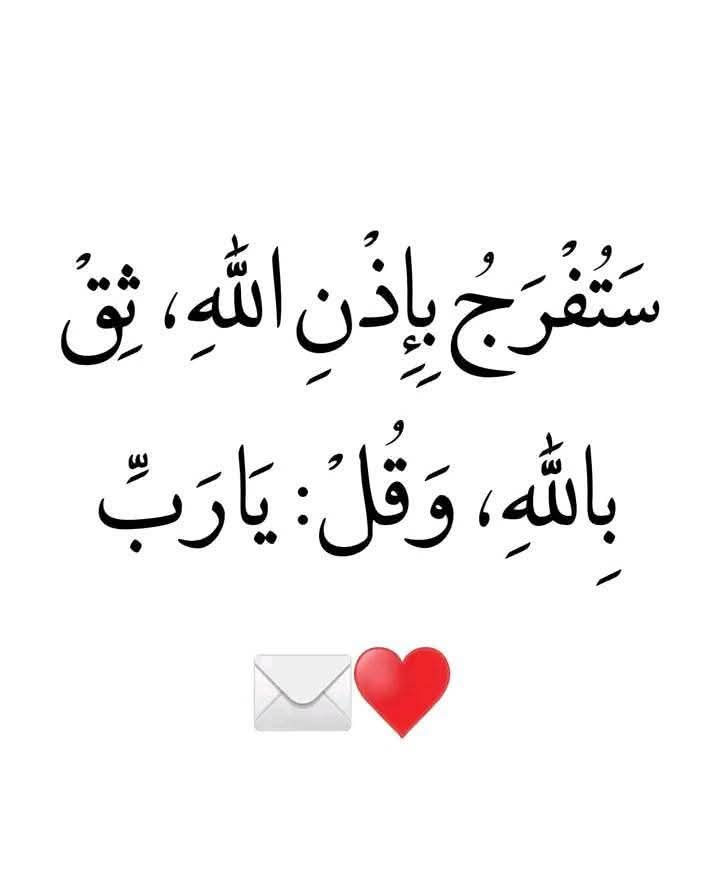 سَتُفْرَجُ بِإِذْنِ اللّٰهِ، ثِقْ
بِاللّٰهِ، وَقُلْ: يَارَبِّ